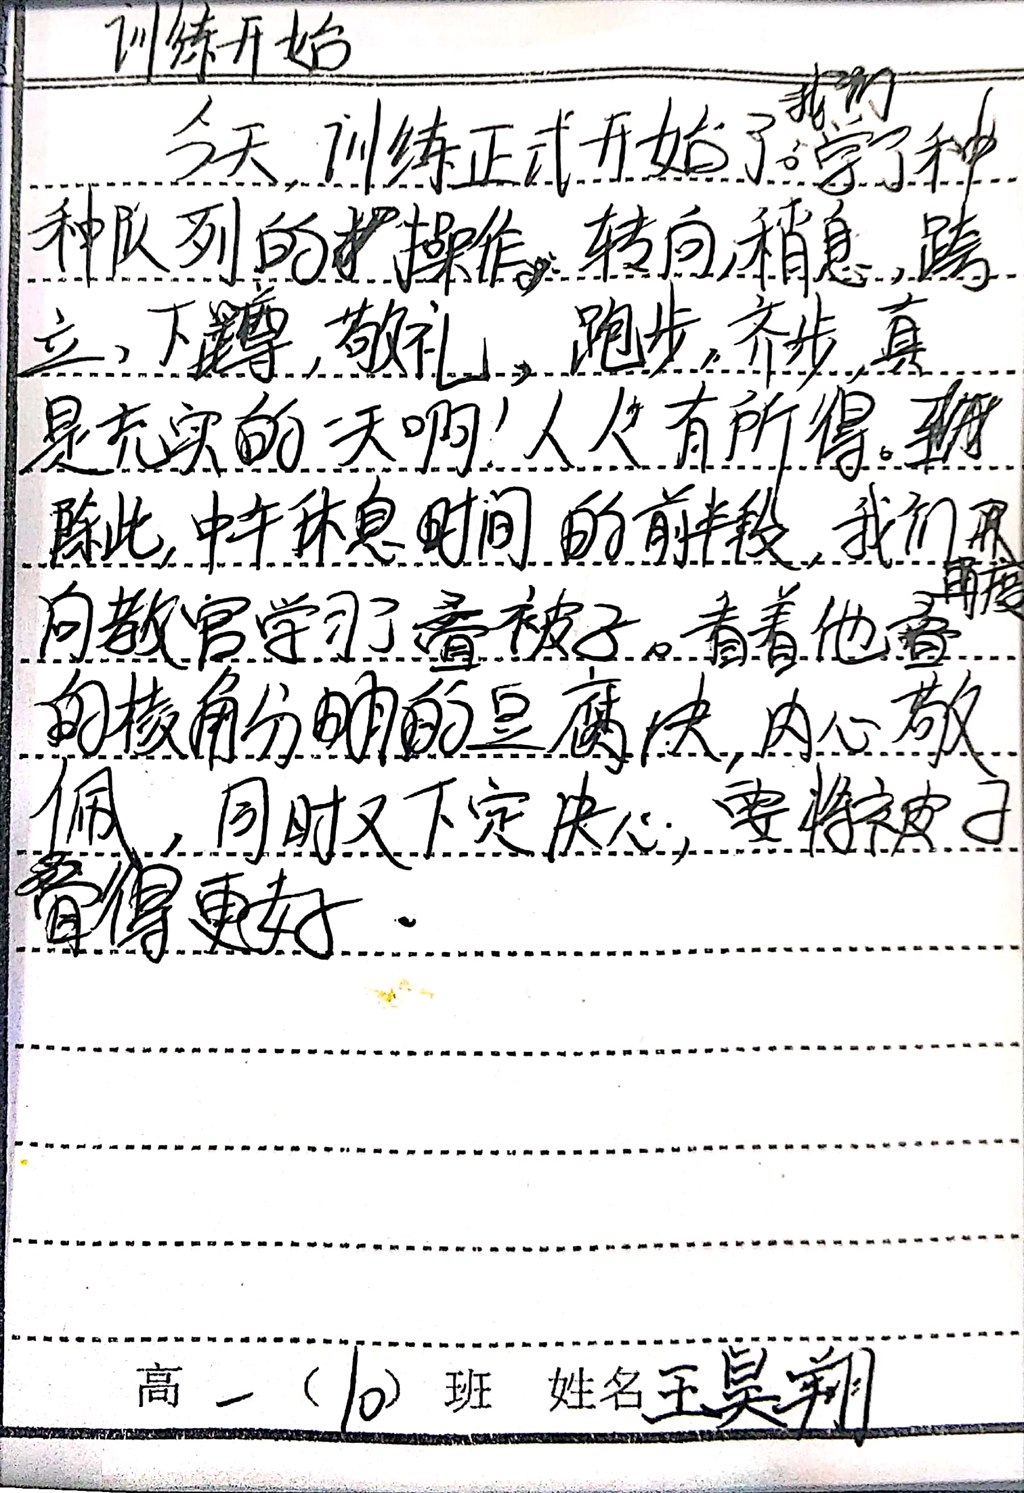 训练开始
今天,训练正式开始了。我们学了种
种队列的操作。转向,稍息,跨
立、下蹲,敬礼,跑步,齐步,真
是充实的一天啊!人人有所得。
除此,中午休息时间的前半段,我们再度
向教官学习了叠被子。看着他叠
的棱角分明的豆腐块,内心敬
佩,同时又下定决心,要将被子
叠得更好.
高一(10)班 姓名王昊翔